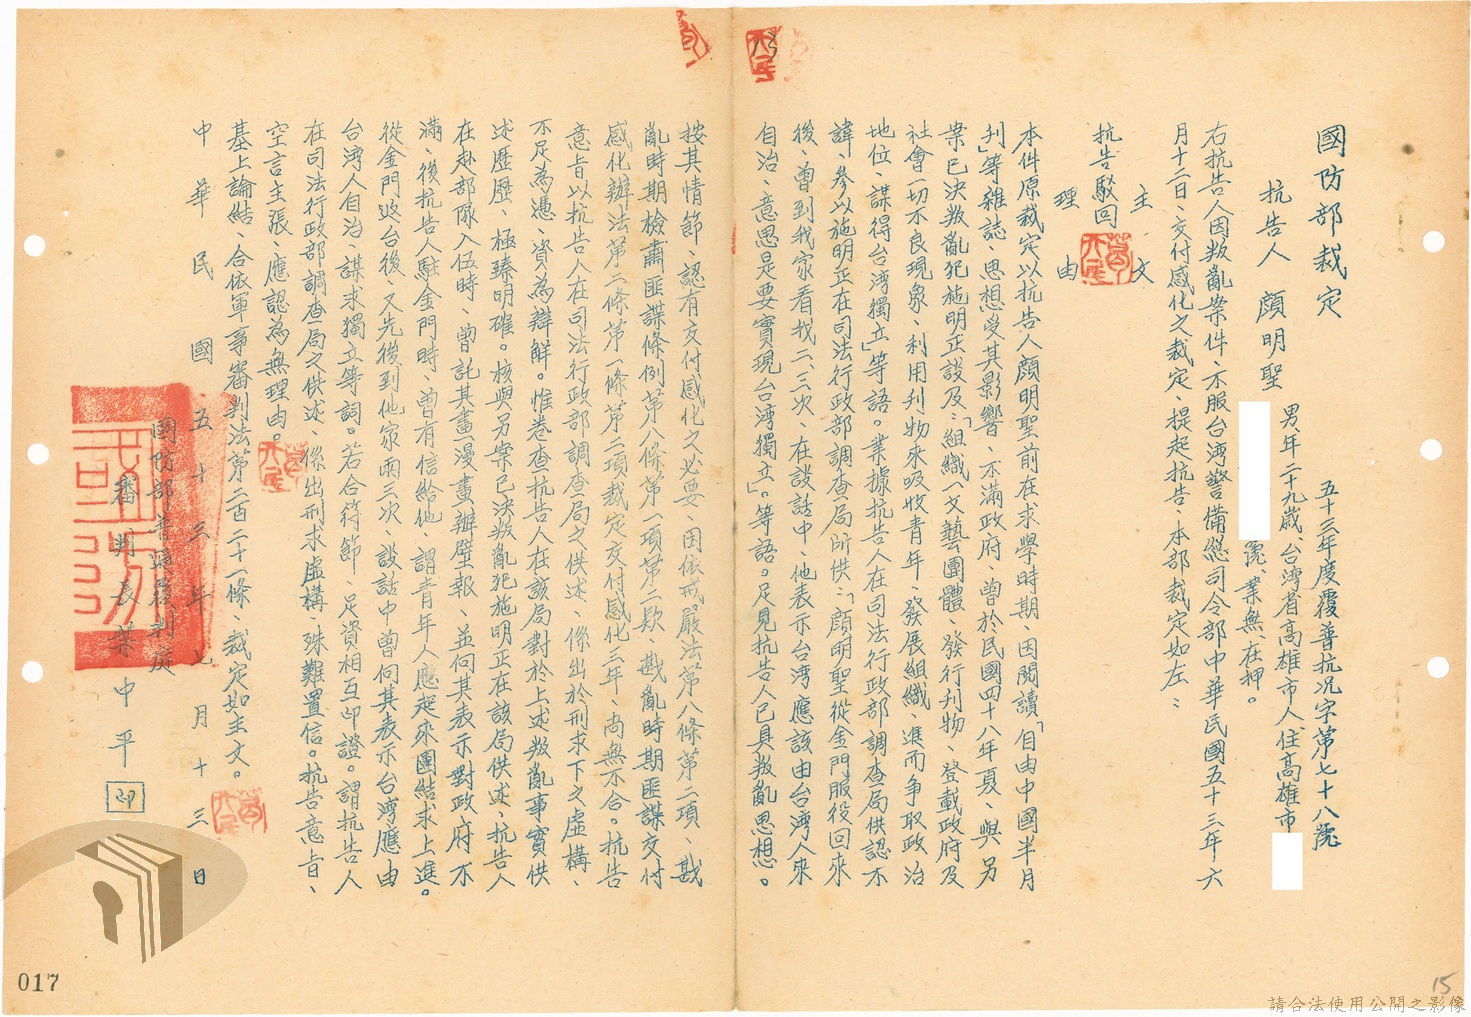 國防部裁定
五十三年度覆普抗況字第七十八號
抗告人 顏明聖 男、年二十九歲、台湾省高雄市人住高雄市
號、業無、在押。
右抗告人因叛亂案件、不服台湾警備總司令部中華民國五十三年六
月十二日、交付感化之裁定、提起抗告、本部裁定如左：
主文
抗告駁回
理由
本件原裁定以抗告人顏明聖前在求學時期、因閱讀「自由中國半月
刊」等雜誌、思想受其影響、不滿政府、曾於民國四十八年夏、與另
案已決叛亂犯施明正談及：「組織一文藝團體、發行刋物、登載政府及
社會一切不良現象、利用刋物來吸收青年、發展組織、進而爭取政治
地位、謀得台湾獨立」等語。業據抗告人在司法行政部調查局供認不
諱、參以施明正在司法行政部調查局所供：「顏明聖從金門服役回來
後、曾到我家看我二、三次、在談話中、他表示台湾應該由台湾人來
自治、意思是要實現台湾獨立」。等語。足見抗告人已具叛亂思想。
按其情節、認有交付感化之必要、因依戒嚴法第八條第二項、戡
亂時期檢肅匪諜條例第八條第一項第二欵、戡亂時期匪諜交付
感化辦法第二條第一條第二項裁定交付感化三年、尚無不合。抗告
意旨以抗告人在司法行政部調查局之供述、係出於刑求下之虛構、
不足為憑、資為辯解。惟卷查抗告人在該局對於上述叛亂事實供
述歷歷、極臻明確。核與另案已決叛亂犯施明正在該局供述、抗告人
在赴部隊入伍時、曾託其畫漫畫辦壁報、並向其表示對政府不
滿、後抗告人駐金門時、曾有信給他、謂青年人應起來團結求上進。
從金門返台後、又先後到他家兩三次、談話中曾向其表示台湾應由
台湾人自治、謀求獨立等詞。若合符節、足資相互印證。謂抗告人
在司法行政部調查局之供述、係出刑求虛構、殊難置信。抗告意旨、
空言主張、應認為無理由。
基上論結、合依軍事審判法第二百二十一條、裁定如主文。
中華民國五十三年七月十三日
國防部普通覆判庭
審判長葉中平 印
017
15
請合法使用公開之影像